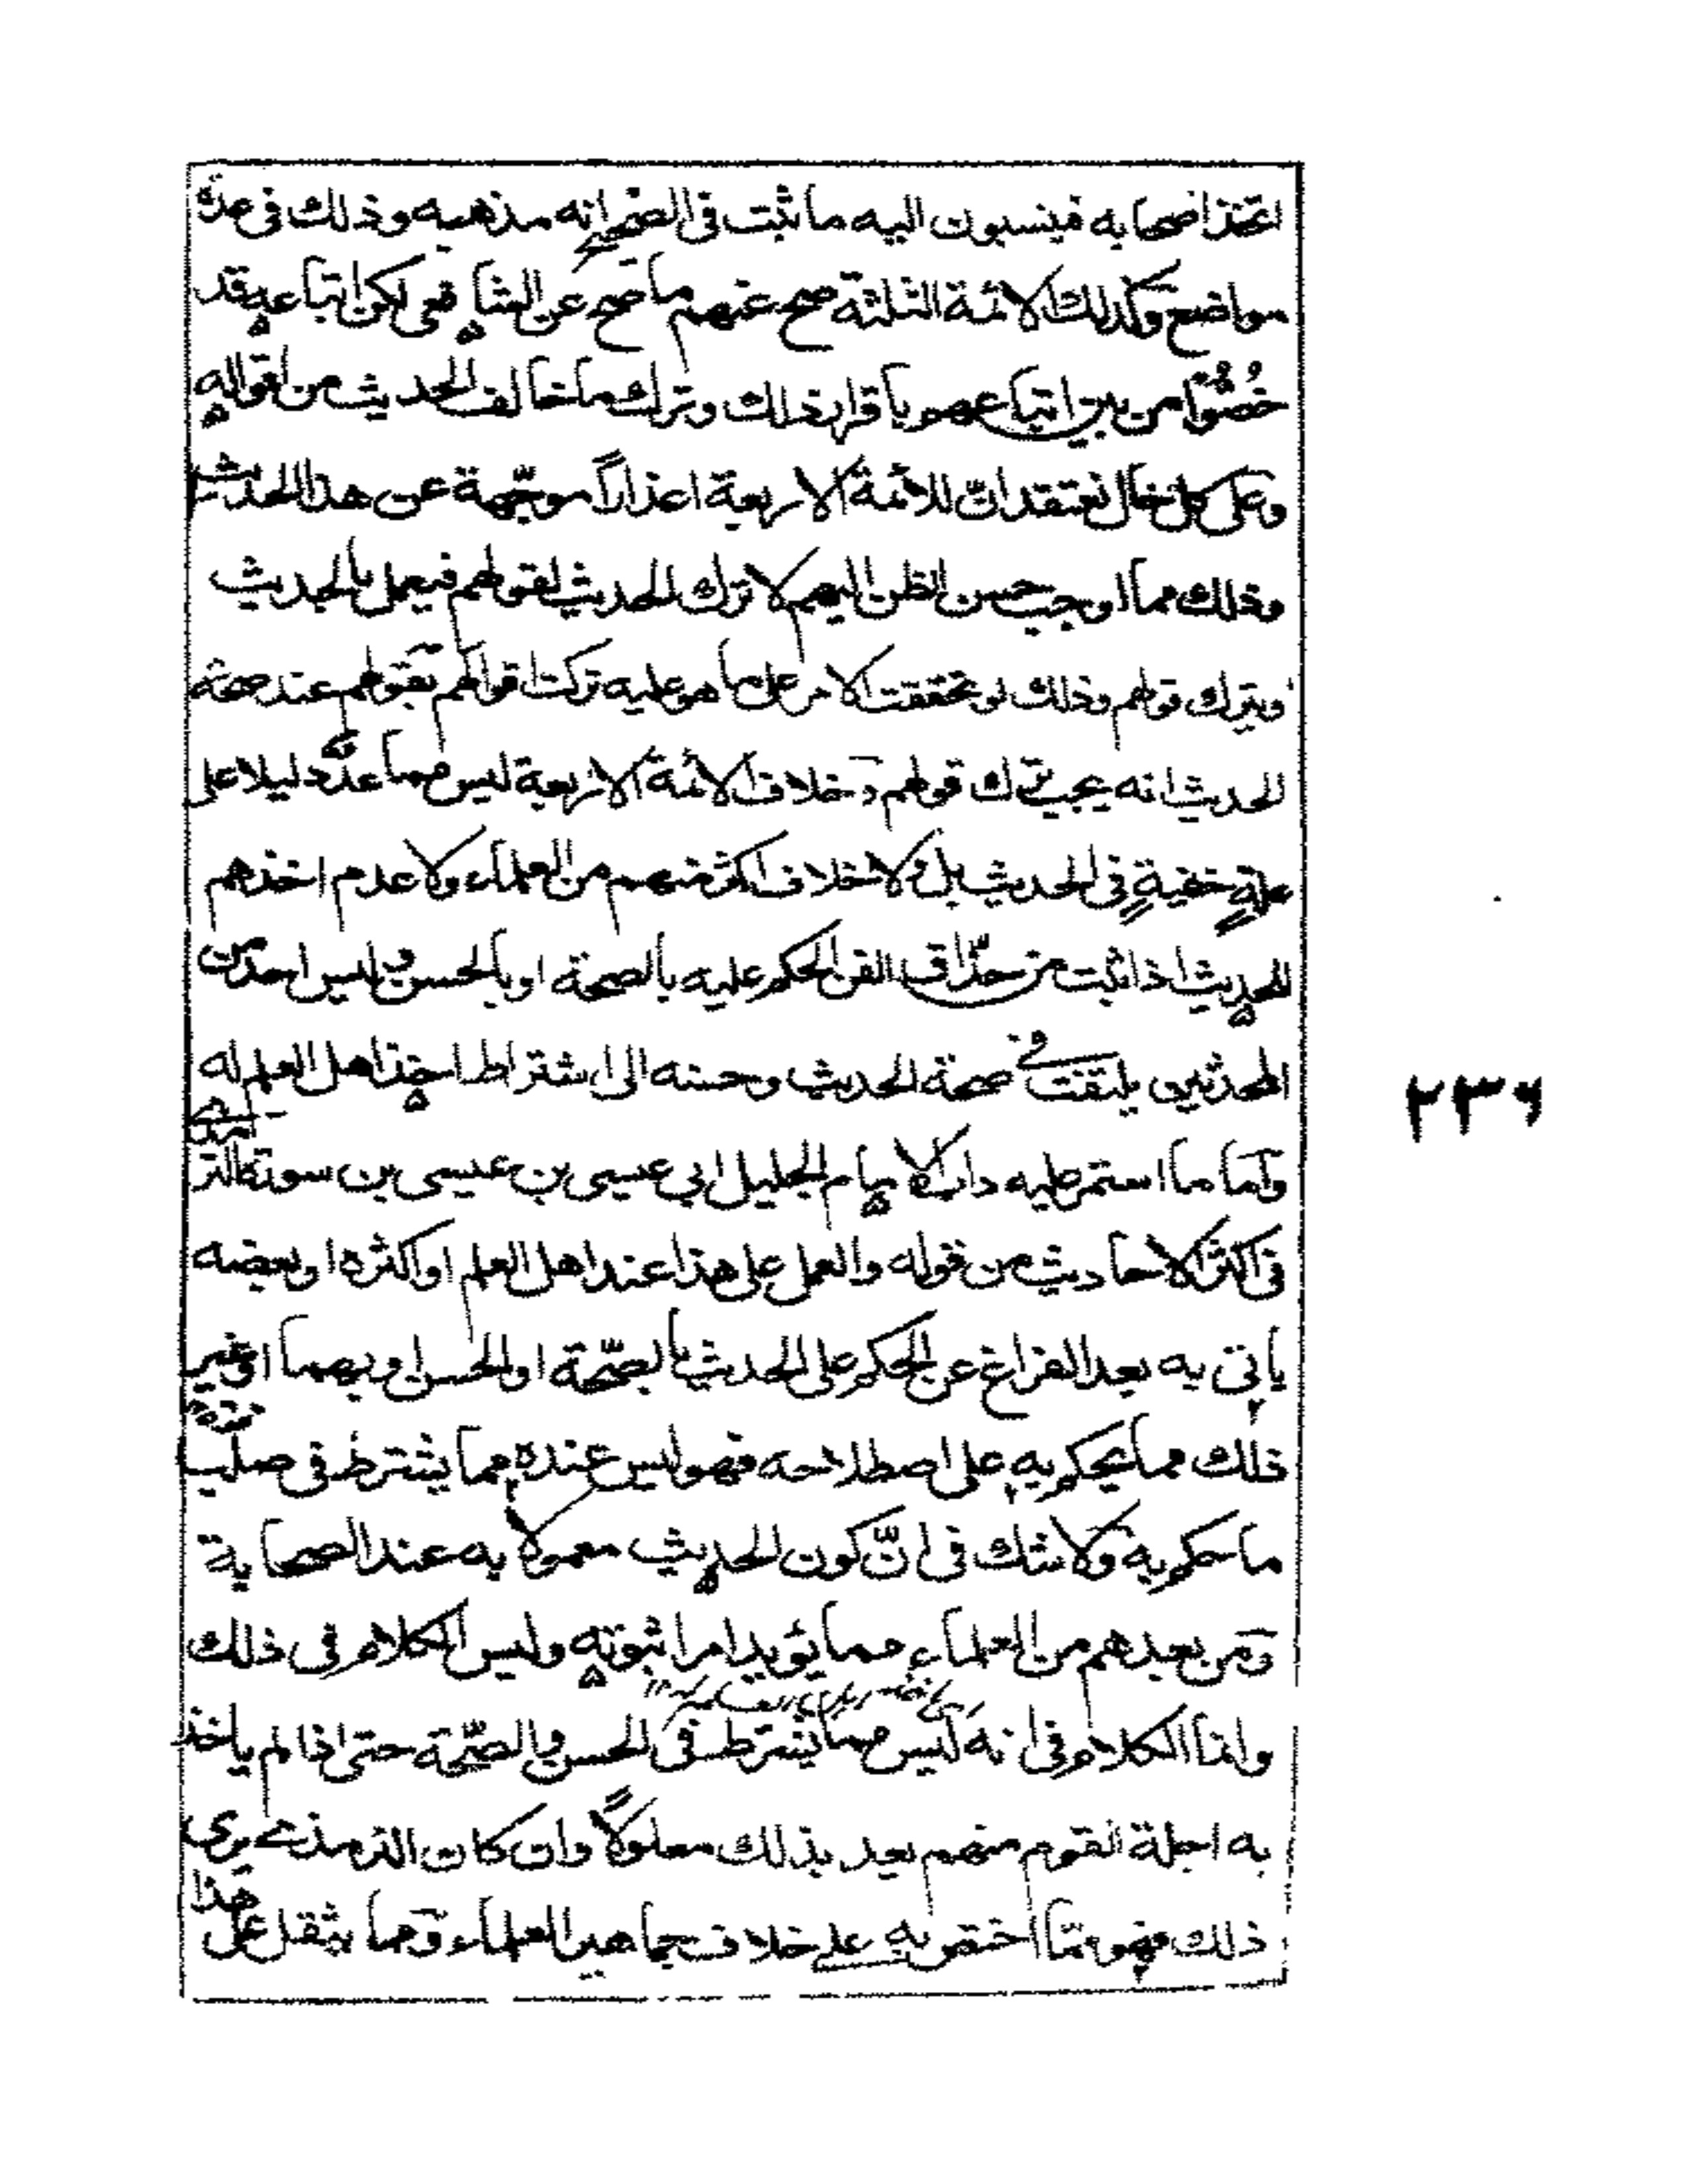 اتخذ اصحابه فينسبون اليه ما ثبت فى الصحيح انه مذهبه وذلك فى عدة
مواضع وكذلك الائمة الثلثة صح عنهم ما صح عن الشافعى لكن اتباعه قد
خُصُّوا من بين اتباعهم باقرار ذلك وترك ما خالف الحديث من اقواله
وعلى كل حال نعتقد انّ للائمة الاربعة اعذاراً موجّهة عن هذا الحديث
وذلك مما اوجب حسن الظن اليهم لا ترك الحديث لقولهم فيعمل بالحديث
ويترك قولهم وذلك لو تحققت الامر على ما هو عليه تركت اقوالهم بقولهم عند صحة
الحديث انه يجب ترك قولهم وخلاف الائمة الاربعة ليس مما عدّه دليلا على
علةٍ خفيةٍ فى الحديث بل ولا خلاف اكثر منهم من العلماء ولا عدم اخذهم
الحديث اذا ثبت من حذّاق الفن الحكم عليه بالصحة او بالحسن وليس احد من
المحدثين يلتفت فى صحة الحديث وحسنه الى اشتراط اخذ اهل العلم له
واما ما استمر عليه داب الامام الجليل ابي عيسى بن عيسى بن سورة الترمذى
فى اكثر الاحاديث من قوله والعمل على هذا عند اهل العلم او اكثره او بعضه
ياتى به بعد الفراغ عن الحكم على الحديث بالصّحة او الحسن او بهما او غير
ذلك مما يحكم به على اصطلاحه فهو ليس عنده مما يشترط فى صلب
ما حكم به ولا شك فى انّ كون الحديث معمولا به عند الصحابة
ومن بعدهم من العلماء مما يؤيد امر ثبوته وليس الكلام فى ذلك
وانما الكلام فى انه ليس مما يشترط فى الحسن والصّحة حتى اذا لم ياخذ
به اجلة القوم منهم يعد بذلك معلولاً وان كان الترمذى يرى
ذلك فهو مما اختص به على خلاف جماهير العلماء ومما يثقل على هذا
٢٣٦